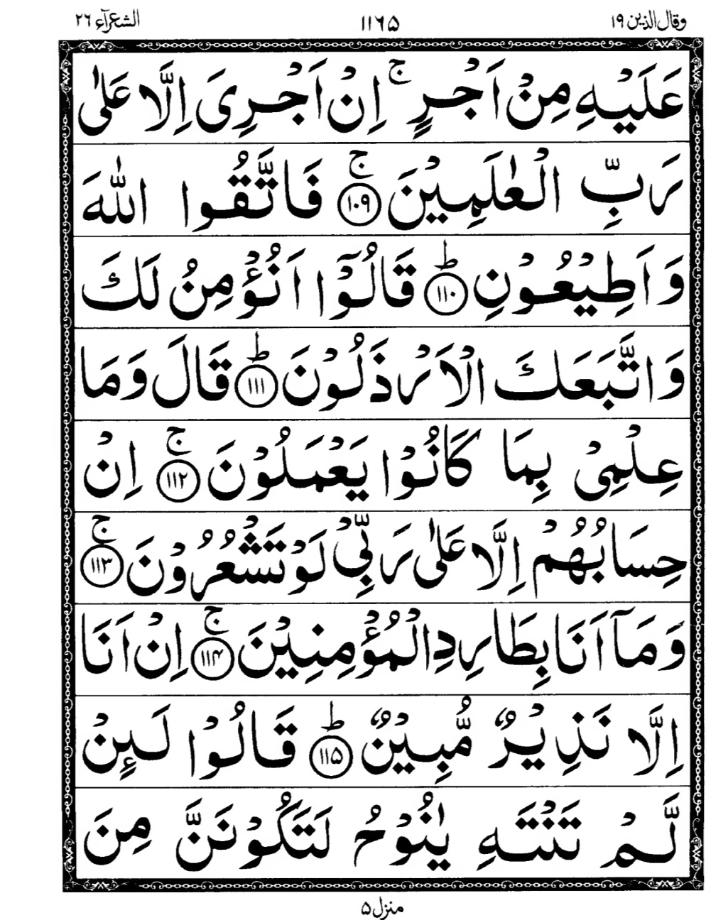 وقال الذین ١٩ ١١٦۵ الشعرآء ٢٦
عَلَيْهِ مِنْ اَجْرٍ ۚ اِنْ اَجْرِیَ اِلَّا عَلٰی
رَبِّ الْعٰلَمِيْنَ ۚ ﴿١٠٩﴾ فَاتَّقُوا اللّٰهَ
وَاَطِيْعُوْنِ ؕ ﴿١١٠﴾ قَالُوْۤا اَنُؤْمِنُ لَكَ
وَاتَّبَعَكَ الْاَرْذَلُوْنَ ؕ ﴿١١١﴾ قَالَ وَمَا
عِلْمِیْ بِمَا كَانُوْا يَعْمَلُوْنَ ۚ ﴿١١٢﴾ اِنْ
حِسَابُهُمْ اِلَّا عَلٰی رَبِّیْ لَوْ تَشْعُرُوْنَ ۚ ﴿١١٣﴾
وَمَاۤ اَنَا بِطَارِدِ الْمُؤْمِنِيْنَ ۚ ﴿١١۴﴾ اِنْ اَنَا
اِلَّا نَذِيْرٌ مُّبِيْنٌ ؕ ﴿١١۵﴾ قَالُوْا لَىِٕنْ
لَّمْ تَنْتَهِ يٰنُوْحُ لَتَكُوْنَنَّ مِنَ
منزل ۵